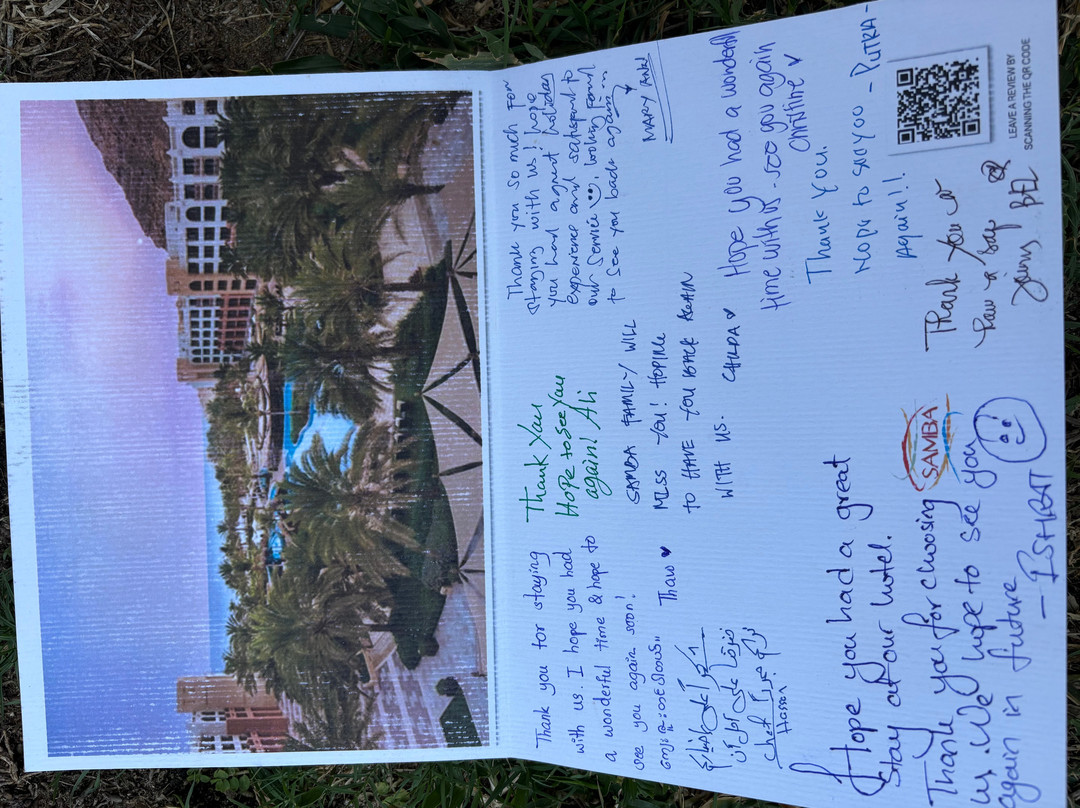 Thank you for staying
with us. I hope you had
a wonderful time & hope to
see you again soon!
Thaw
Thank You
Hope to see You
again! Ali
Thank you so much for
staying with us! I hope
you had a great holiday
experience and satisfied to
our service, looking forward
to see you back again
MARY ANN
SAMBA FAMILY WILL
MISS YOU! HOPING
TO HAVE YOU BACK AGAIN
WITH US.
Hope you had a wonderful
time with us - see you again
Christine
Thank You.
Hope to see you - PUTRA -
Again!!
Chef
Hassan
Hope you had a great
stay at our hotel.
Thank you for choosing
us. We hope to see you
again in future
- ISHRAT
SAMBA
Thank You
LEAVE A REVIEW BY
SCANNING THE QR CODE